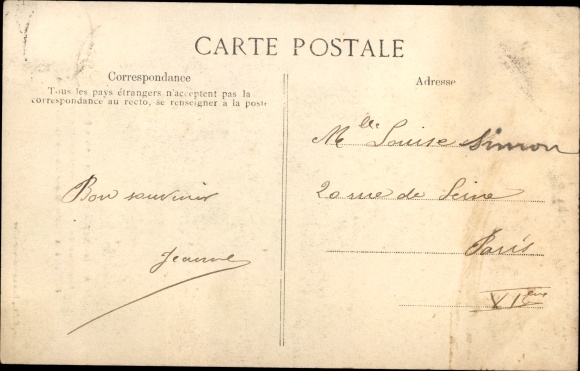 CARTE POSTALE
Correspondance
Tous les pays étrangers n'acceptent pas la
correspondance au recto, se renseigner à la poste
Bon souvenir
Jeanne
Adresse
Mlle Louise Simon
20 rue de Seine
Paris
VIème